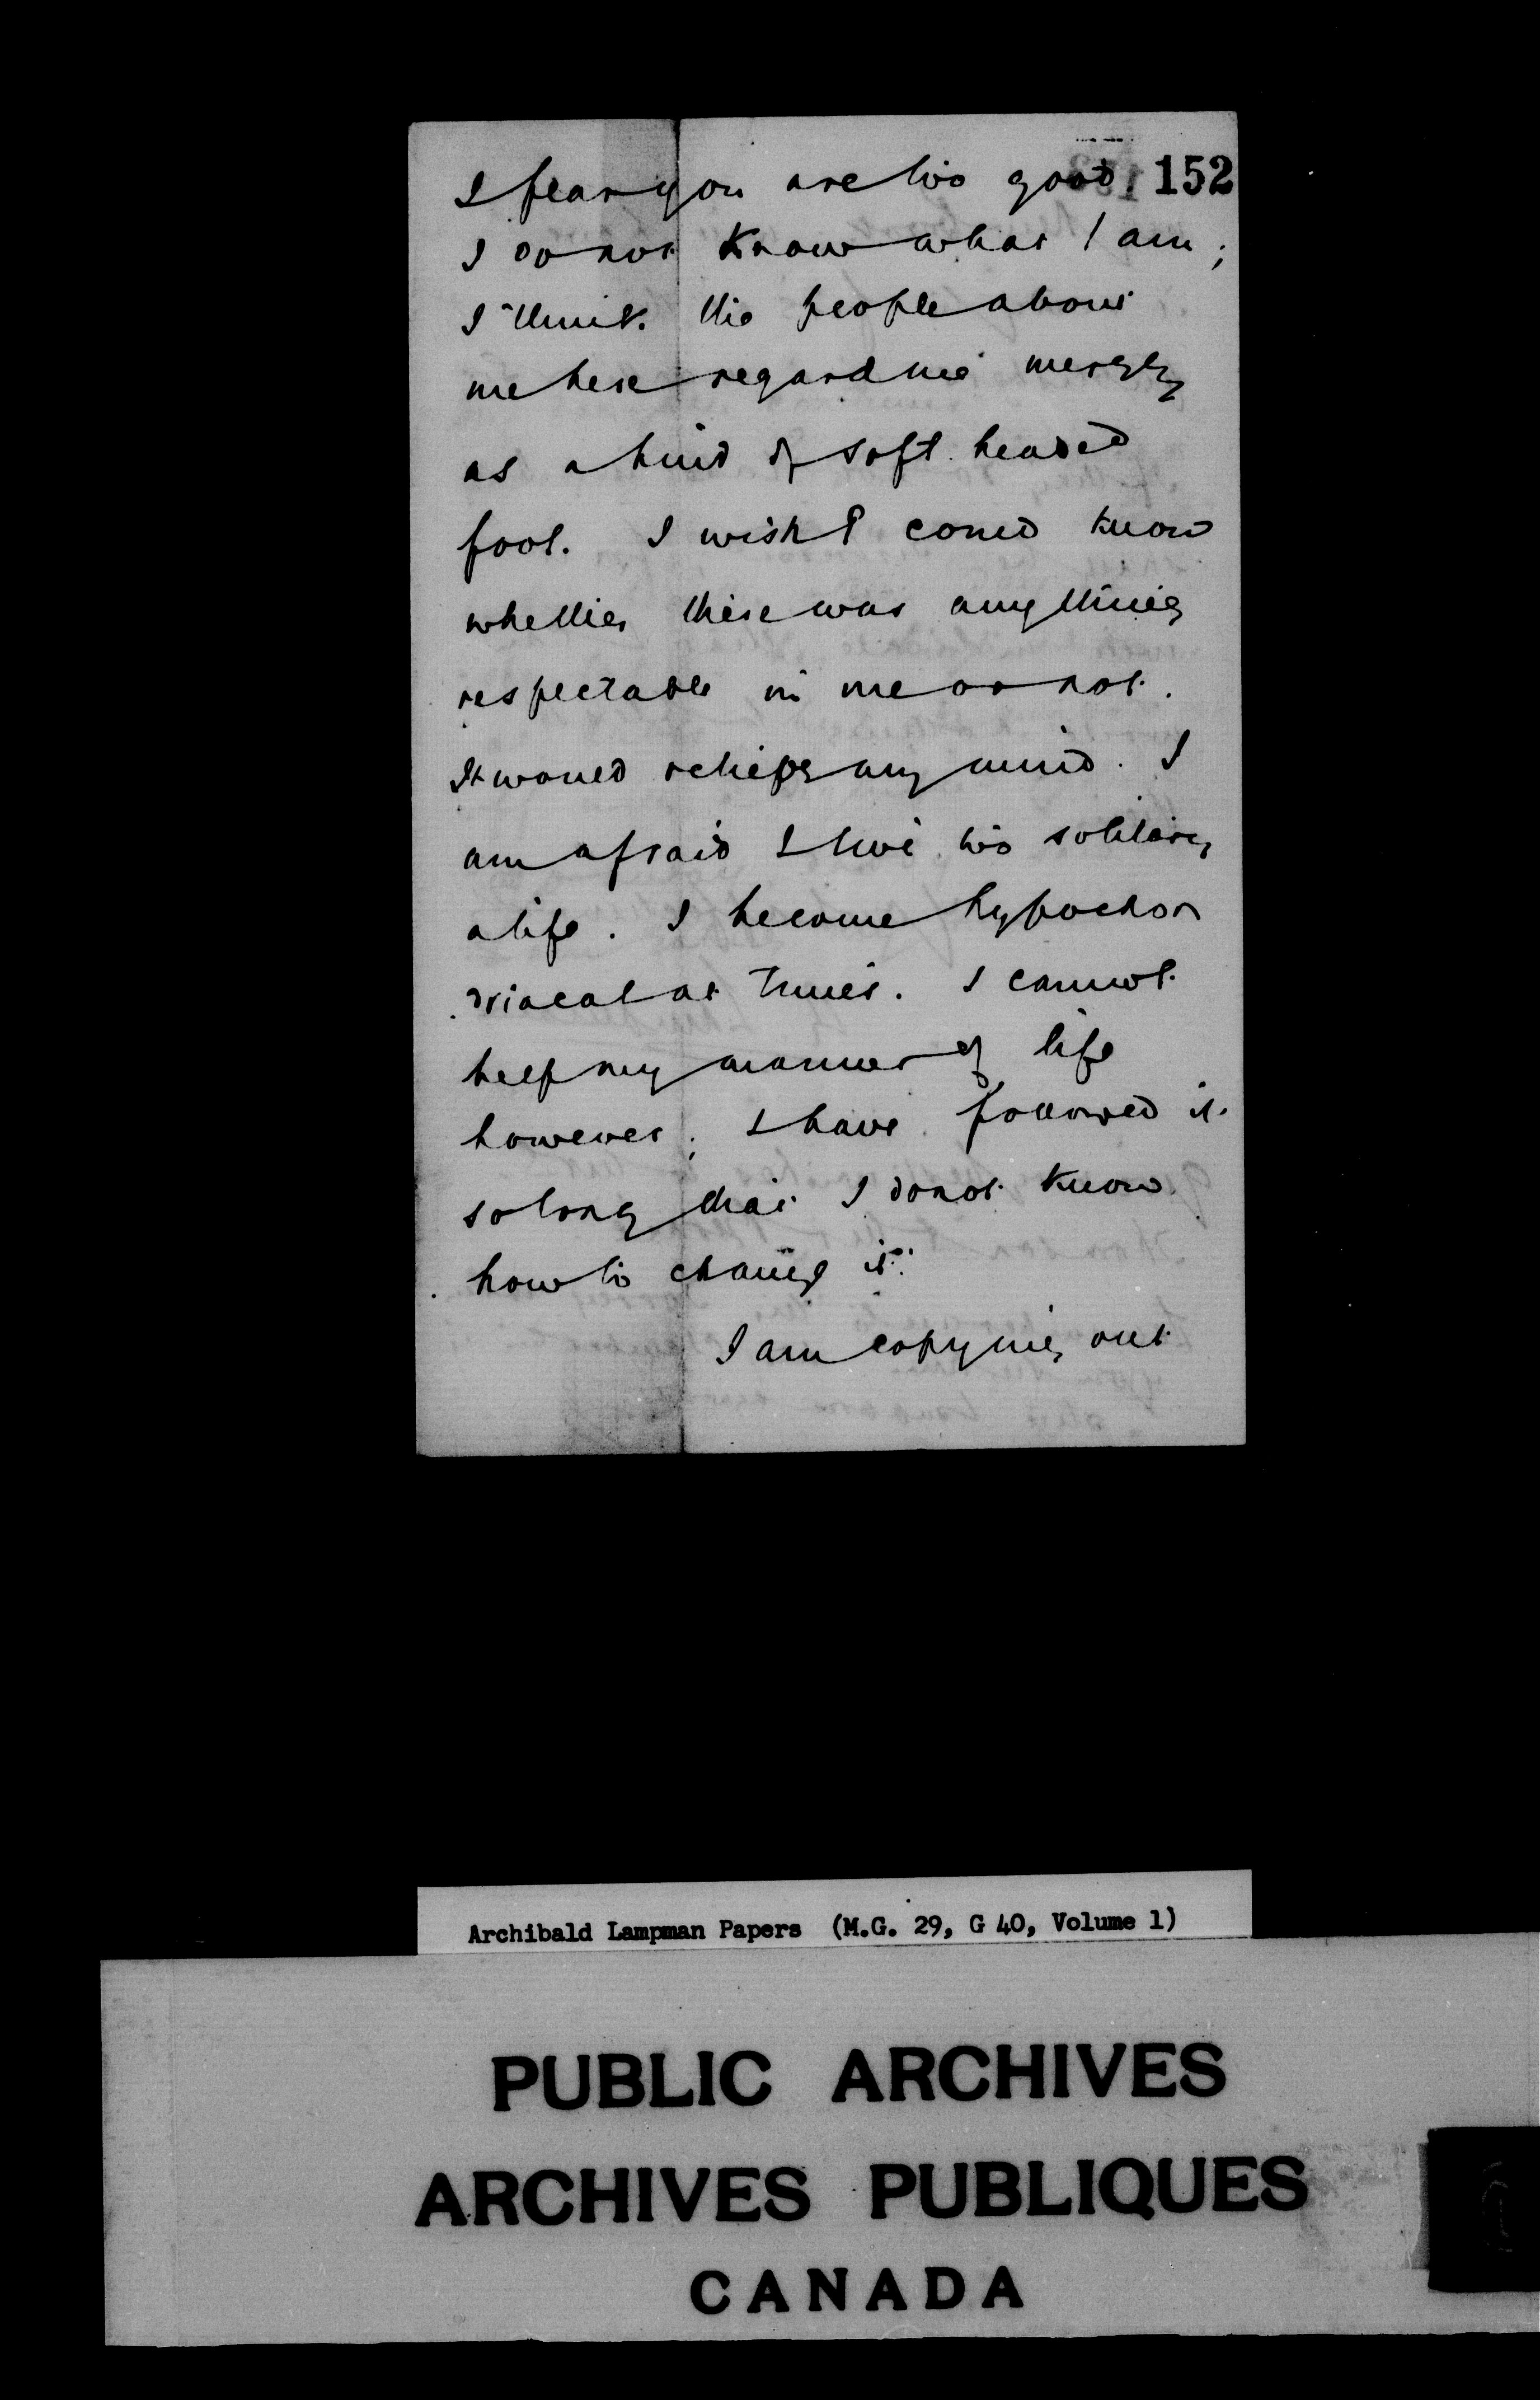 152
I fear you are too good.
I do not know what I am;
I think the people about
me here regard me merely
as a kind of soft headed
fool. I wish I could know
whether there was anything
respectable in me or not.
It would relieve my mind. I
am afraid I live too solitary
a life. I become hypochon
driacal at times. I cannot
help my manner of life
however; I have followed it
so long that I do not know
how to change it.
I am copying out
Archibald Lampman Papers (M.G. 29, G 40, Volume 1)
PUBLIC ARCHIVES
ARCHIVES PUBLIQUES
CANADA